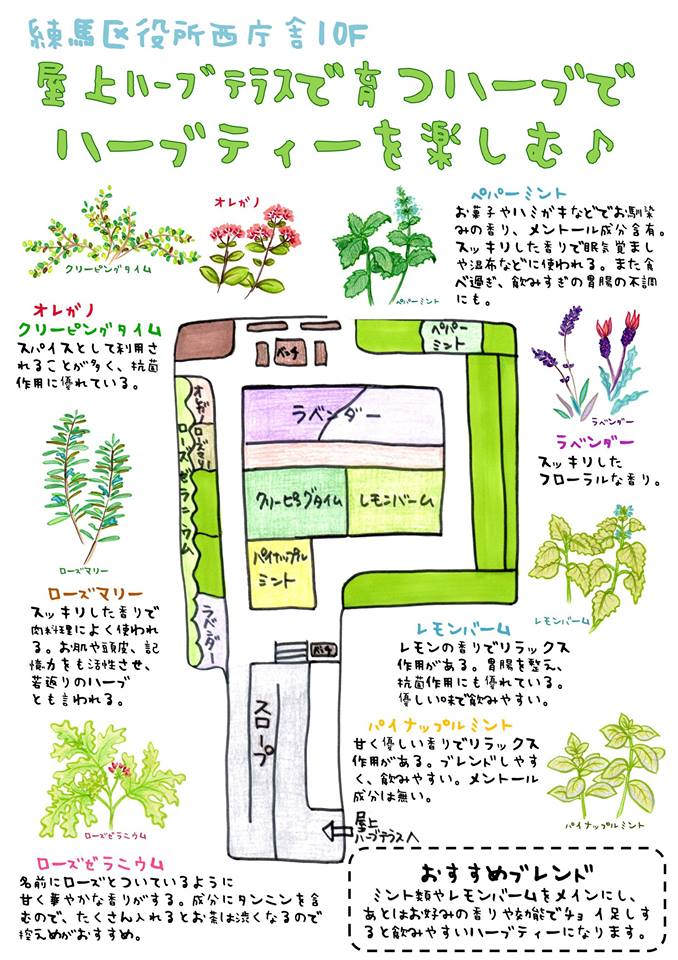 練馬区役所西庁舎10F
屋上ハーブテラスで育つハーブで
ハーブティーを楽しむ♪
クリーピングタイム
オレガノ
ペパーミント
ペパーミント
お菓子やハミガキなどでお馴染
みの香り、メントール成分含有。
スッキリした香りで眠気覚まし
や湿布などに使われる。また食
べ過ぎ、飲みすぎの胃腸の不調
にも。
オレガノ
クリーピングタイム
スパイスとして利用さ
れることが多く、抗菌
作用に優れている。
ローズマリー
ローズマリー
スッキリした香りで
肉料理によく使われ
る。お肌や頭皮、記
憶力をも活性させ、
若返りのハーブ
とも言われる。
ベンチ
ペパー
ミント
オレガノ
ローズマリー
ローズゼラニウム
ラベンダー
クリーピングタイム
レモンバーム
パイナップル
ミント
ラベンダー
ベンチ
スロープ
屋上
ハーブテラスへ
ラベンダー
ラベンダー
スッキリした
フローラルな香り。
レモンバーム
レモンバーム
レモンの香りでリラックス
作用がある。胃腸を整え、
抗菌作用にも優れている。
優しい味で飲みやすい。
パイナップルミント
甘く優しい香りでリラックス
作用がある。ブレンドしやす
く、飲みやすい。メントール
成分は無い。
パイナップルミント
ローズゼラニウム
ローズゼラニウム
名前にローズとついているように
甘く華やかな香りがする。成分にタンニンを含
むので、たくさん入れるとお茶は渋くなるので
控えめがおすすめ。
おすすめブレンド
ミント類やレモンバームをメインにし、
あとはお好みの香りや効能でチョイ足しす
ると飲みやすいハーブティーになります。